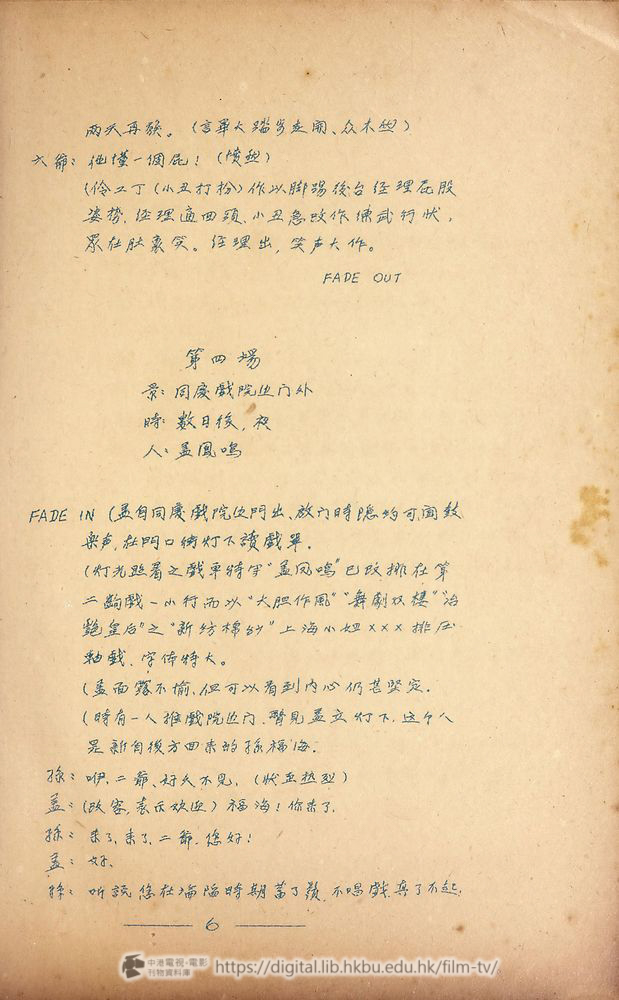 兩天再談。(言畢大踏步走開、众木然)
六爺：他懂一個屁！(憤然)
(伶工丁(小丑打扮)作以脚踢後台経理屁股
姿势、経理適回頭、小丑急改作練武行狀，
眾在肚裏笑。経理出，笑声大作。
FADE OUT
第四場
景：同慶戲院边门外
時：數日後，夜
人：孟鳳鳴
FADE IN (孟自同慶戲院边門出、放门時隱約可闻鼓
樂声，在門口街灯下讀戲單。
(灯光照着之戲單特字"孟凤鳴"已改排在第
二齣戲一小行而以"大胆作風""舞劇双棲""冶
艷皇后"之"新纺棉纱"上海小姐×××排压
軸戲、字体特大。
(孟面露不愉、但可以看到內心仍甚堅定。
(時有一人推戲院边门、瞥見孟立灯下、这个人
是新自後方回来的孫福海。
孫：咿、二爺、好久不見，(狀至热烈)
孟：(改容，表示欢迎)福海！你来了、
孫：来了、来了、二爺、您好！
孟：好、
孫：听説您在淪陷時期蓄了鬚、不唱戲、真了不起、
6
中港電視·電影
刊物資料庫
https://digital.lib.hkbu.edu.hk/film-tv/